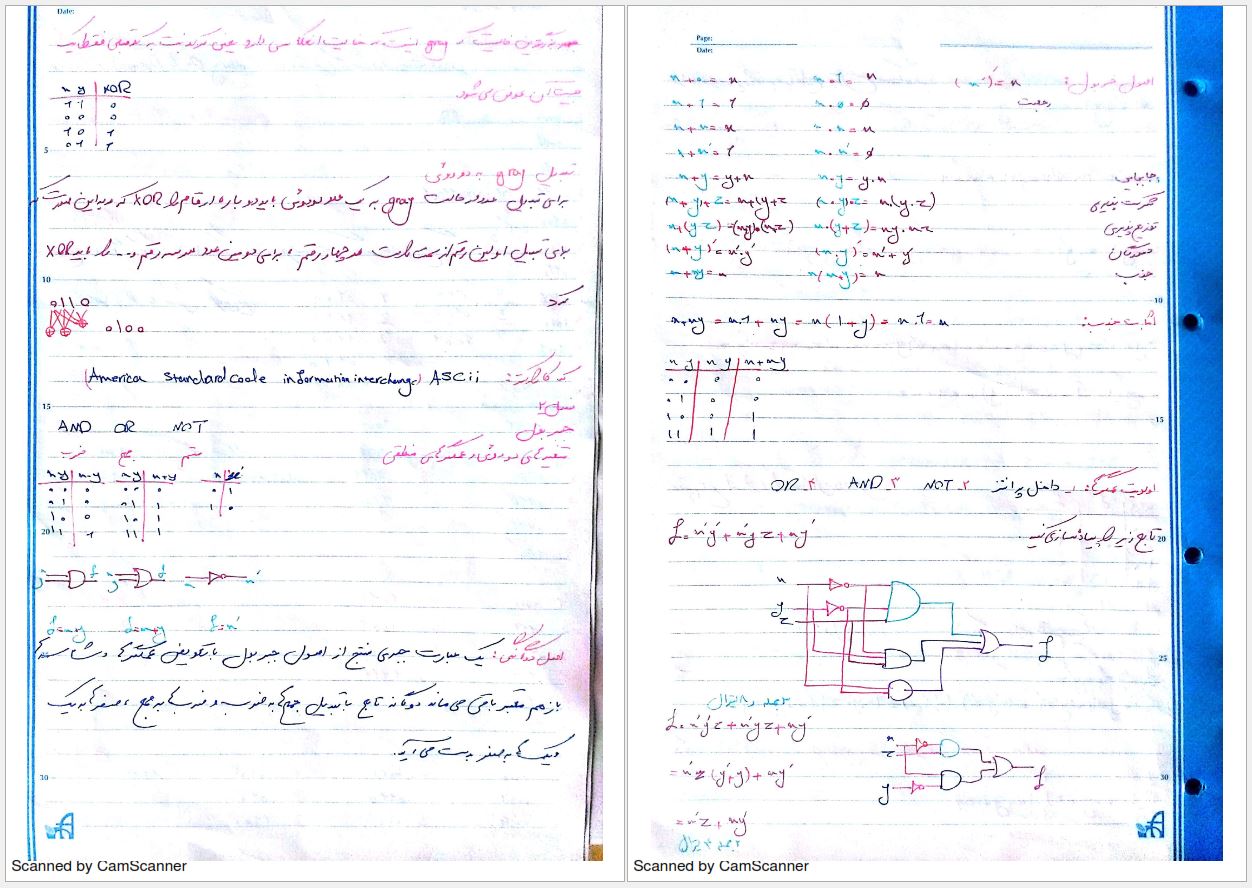 Date:
gray
x y XOR
1 1 0
0 0 0
1 0 1
0 1 1
می‌شود
5
تبدیل gray به
برای تبدیل عدد از حالت gray به یک عدد باید دوباره ارقام را XOR کرد به این صورت که
برای تبدیل اولین رقم از سمت راست هر چهار رقم، برای دومین عدد هر سه رقم و ... را باید XOR
کرد
10
0110
0100
(America Standard Code information interchange) ASCii
15
فصل ۲
جبر بول
AND OR NOT
متغیرهای و عملگرهای منطقی
ضرب جمع متمم
x y x·y x y x+y x x'
0 0 0 0 0 0 0 1
0 1 0 0 1 1 1 0
1 0 0 1 0 1
1 1 1 1 1 1
20
f=xy f=x+y f=x'
اصل دوگانی: یک عبارت جبری منتج از اصول جبر بول با تعویض عملگرها و
باز هم معتبر باقی می‌ماند دوگانه تابع با تبدیل جمع‌ها به ضرب و ضرب‌ها به جمع، صفرها به یک
و یک‌ها به صفر بدست می‌آید.
30
Scanned by CamScanner
Page:
Date:
اصول جبر بول:
x+0=x x·1=x (x')'=x
x+1=1 x·0=0
x+x=x x·x=x
x+x'=1 x·x'=0
x+y=y+x x·y=y·x جابجایی
(x+y)+z=x+(y+z (x·y)z=x(y·z) شرکت پذیری
x+(y z)=(x+y)(x+z) x·(y+z)=xy+xz توزیع پذیری
(x+y)'=x'y' (x·y)'=x'+y' دمورگان
x+xy=x x(x+y)=x جذب
10
اثبات جذب: x+xy = x·1+xy = x(1+y) = x·1=x
x y x y x+xy
0 0 0 0
0 1 0 0
1 0 0 1
1 1 1 1
15
اولویت عملگرها: ۱ـ داخل پرانتز ۲ـ NOT ۳ـ AND ۴ـ OR
تابع زیر را پیاده‌سازی کنید.
20
f=x'y'z+x'yz+xy'
x
y
z
f
25
f=x'y'z+x'yz+xy'
=x'z(y'+y)+xy'
=x'z+xy'
x
z
y
f
30
Scanned by CamScanner